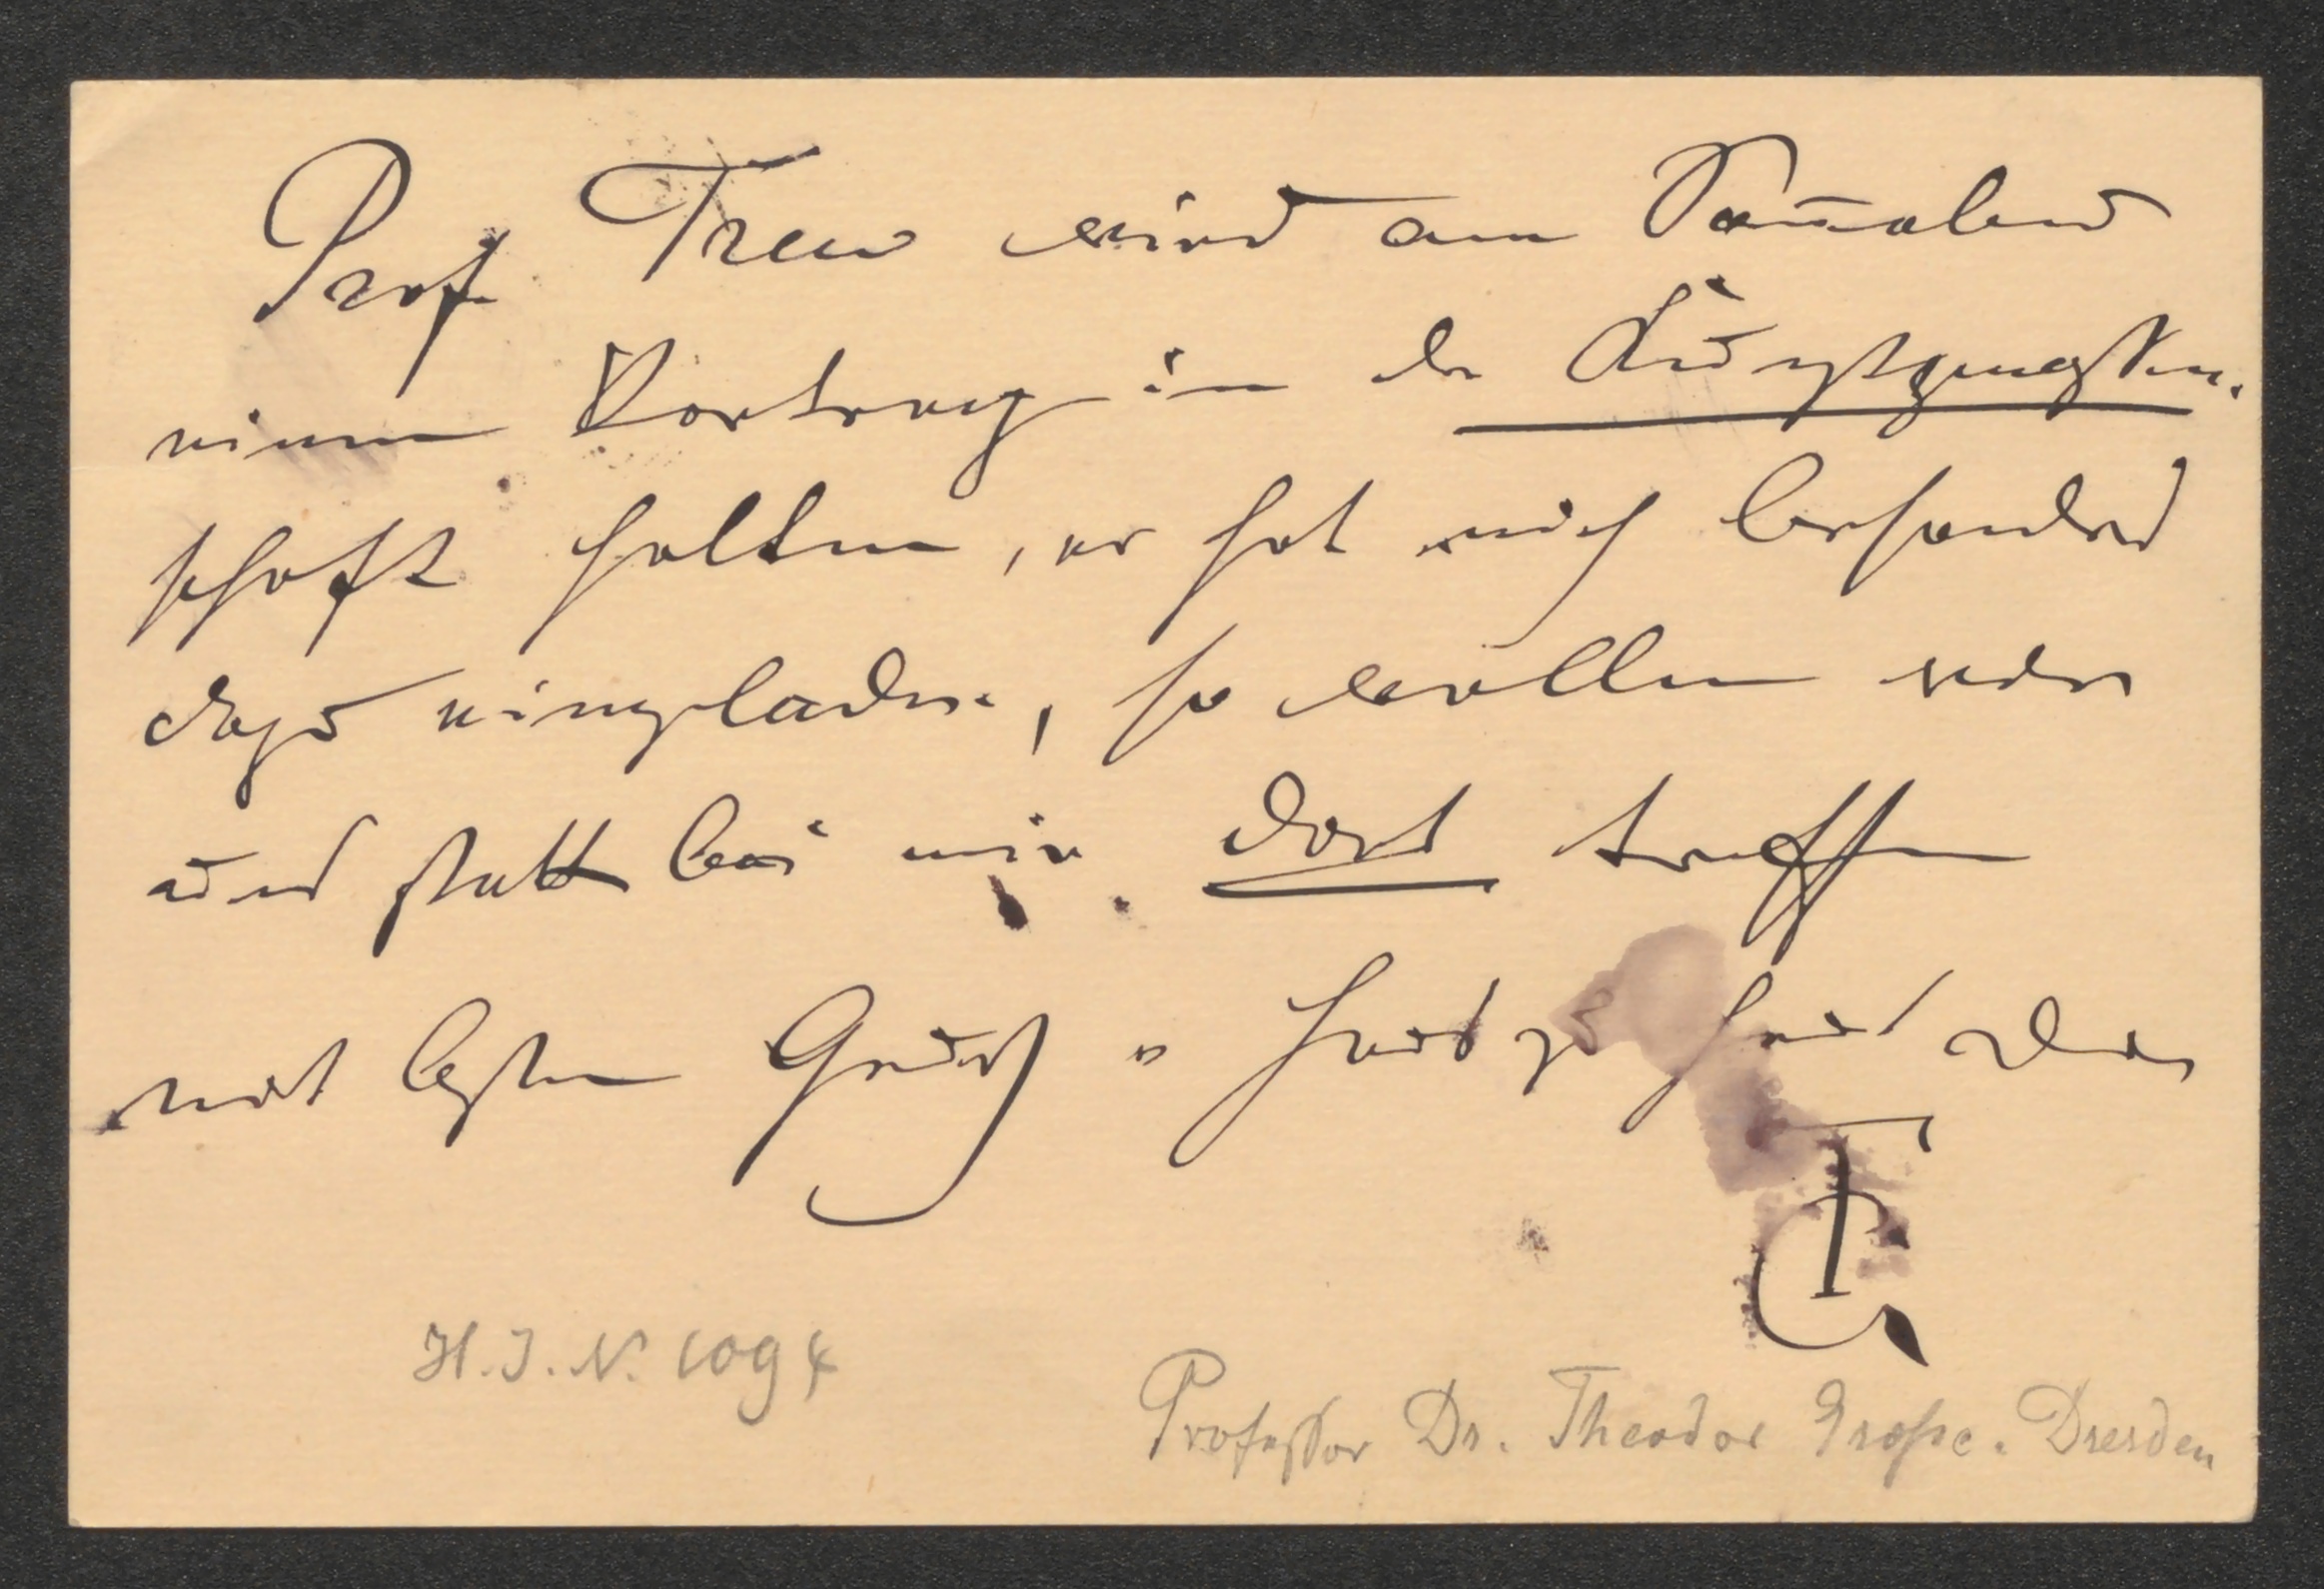 Prof. Treu wird am Sonnabend
einen Vortrag in der Kunstgenossen-
schaft halten, er hat mich besonders
dazu eingeladen, so wollen wir
uns statt bei mir dort treffen
mit besten Gruß u Dein
TG
H. J. N. 1094
Professor Dr. Theodor Große. Dresden